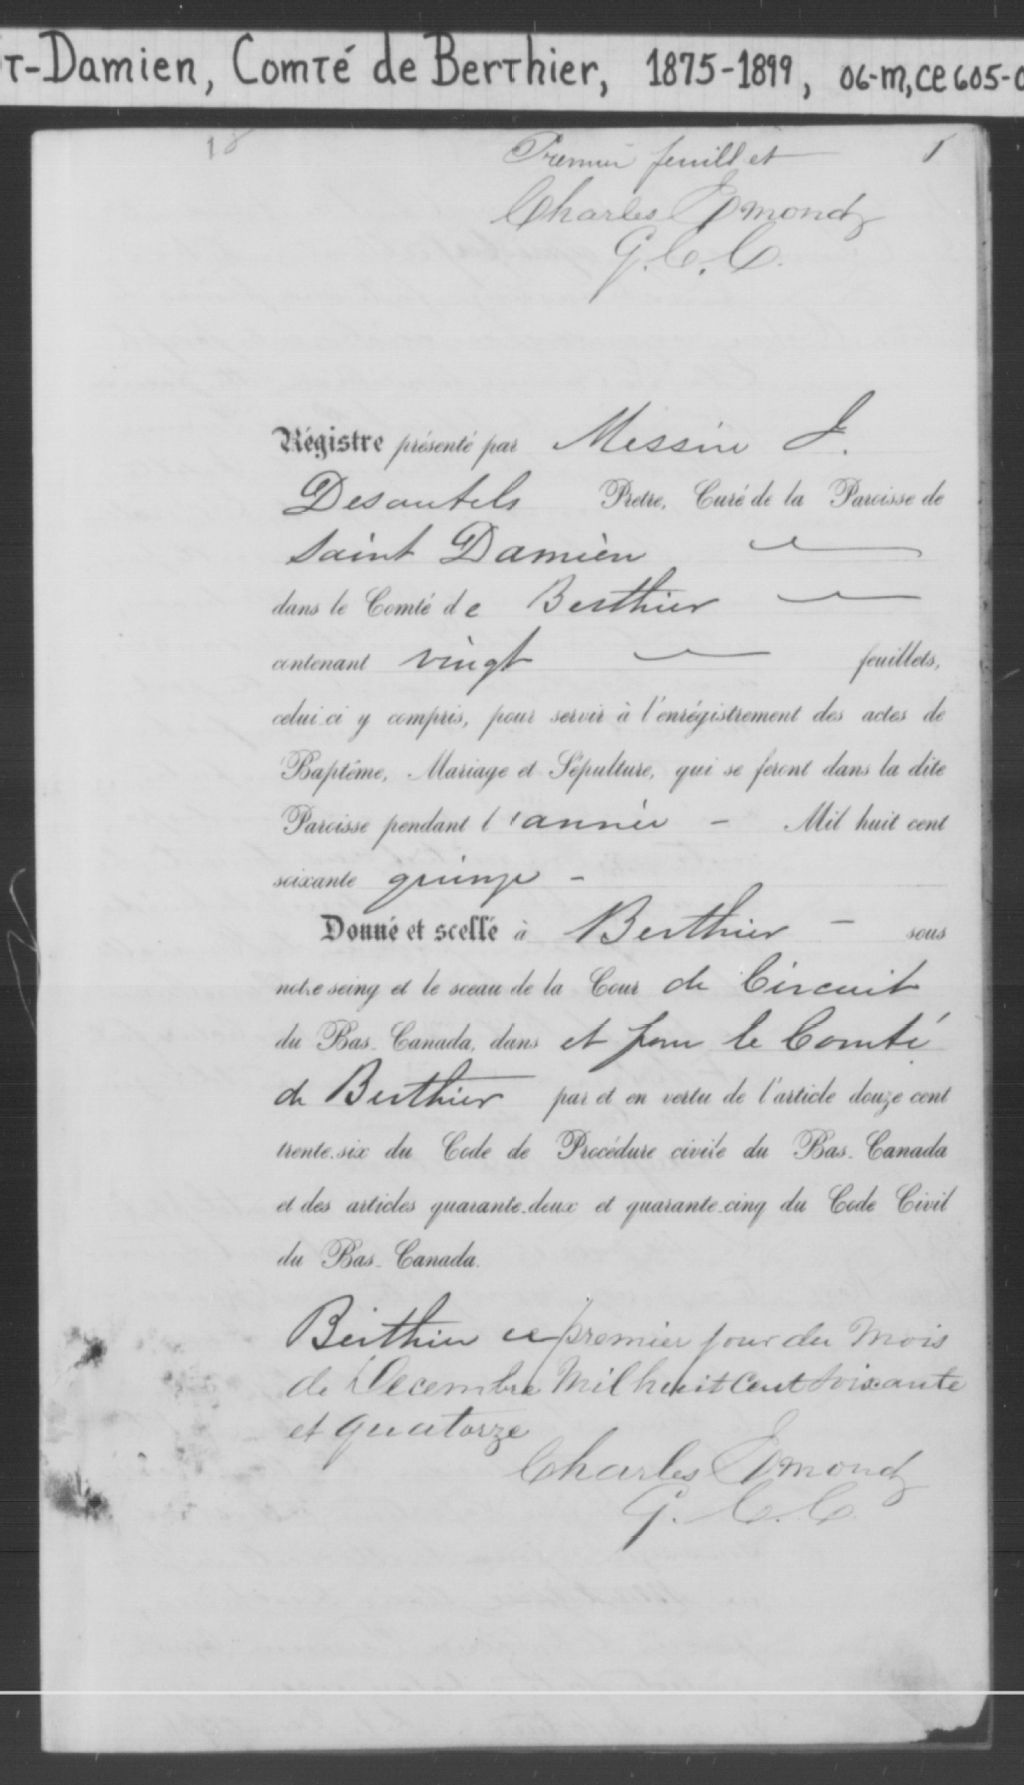 T-Damien, Comté de Berthier, 1875-1899, 06-M, CE605-
18
Premier feuillet 1
Charles Emond
G.C.C.
Régistre présenté par Messire J.
Desautels Prêtre, Curé de la Paroisse de
Saint Damien
dans le Comté de Berthier
contenant vingt feuillets,
celui-ci y compris, pour servir à l'enrégistrement des actes de
Baptême, Mariage et Sépulture, qui se feront dans la dite
Paroisse pendant l'année - Mil huit cent
soixante quinze -
Donné et scellé à Berthier - sous
notre seing et le sceau de la Cour de Circuit
du Bas-Canada, dans et pour le Comté
de Berthier par et en vertu de l'article douze cent
trente-six du Code de Procédure civile du Bas-Canada
et des articles quarante-deux et quarante-cinq du Code Civil
du Bas-Canada.
Berthier ce premier jour du Mois
de Decembre Mil huit Cent soixante
et quatorze
Charles Emond
G.C.C.